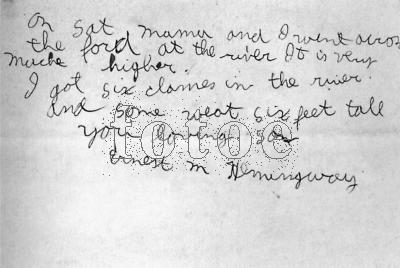 On Sat mama and I went across
the ford at the river It is very
muche higher.
I got six clames in the river
and some weat six feet tall
your loving son
Ernest M Hemingway
fotoe